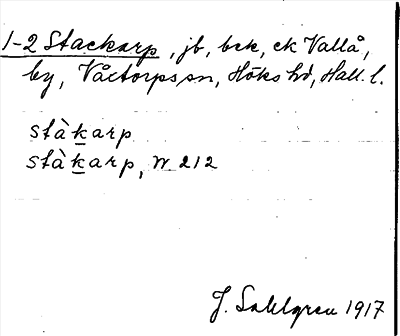 1-2 Stackarp, jb, bck, ck Vallå,
by, Våxtorps sn, Höks hd, Hall. l.
stàkarp
stàkarp, W 212
J. Sahlgren 1917